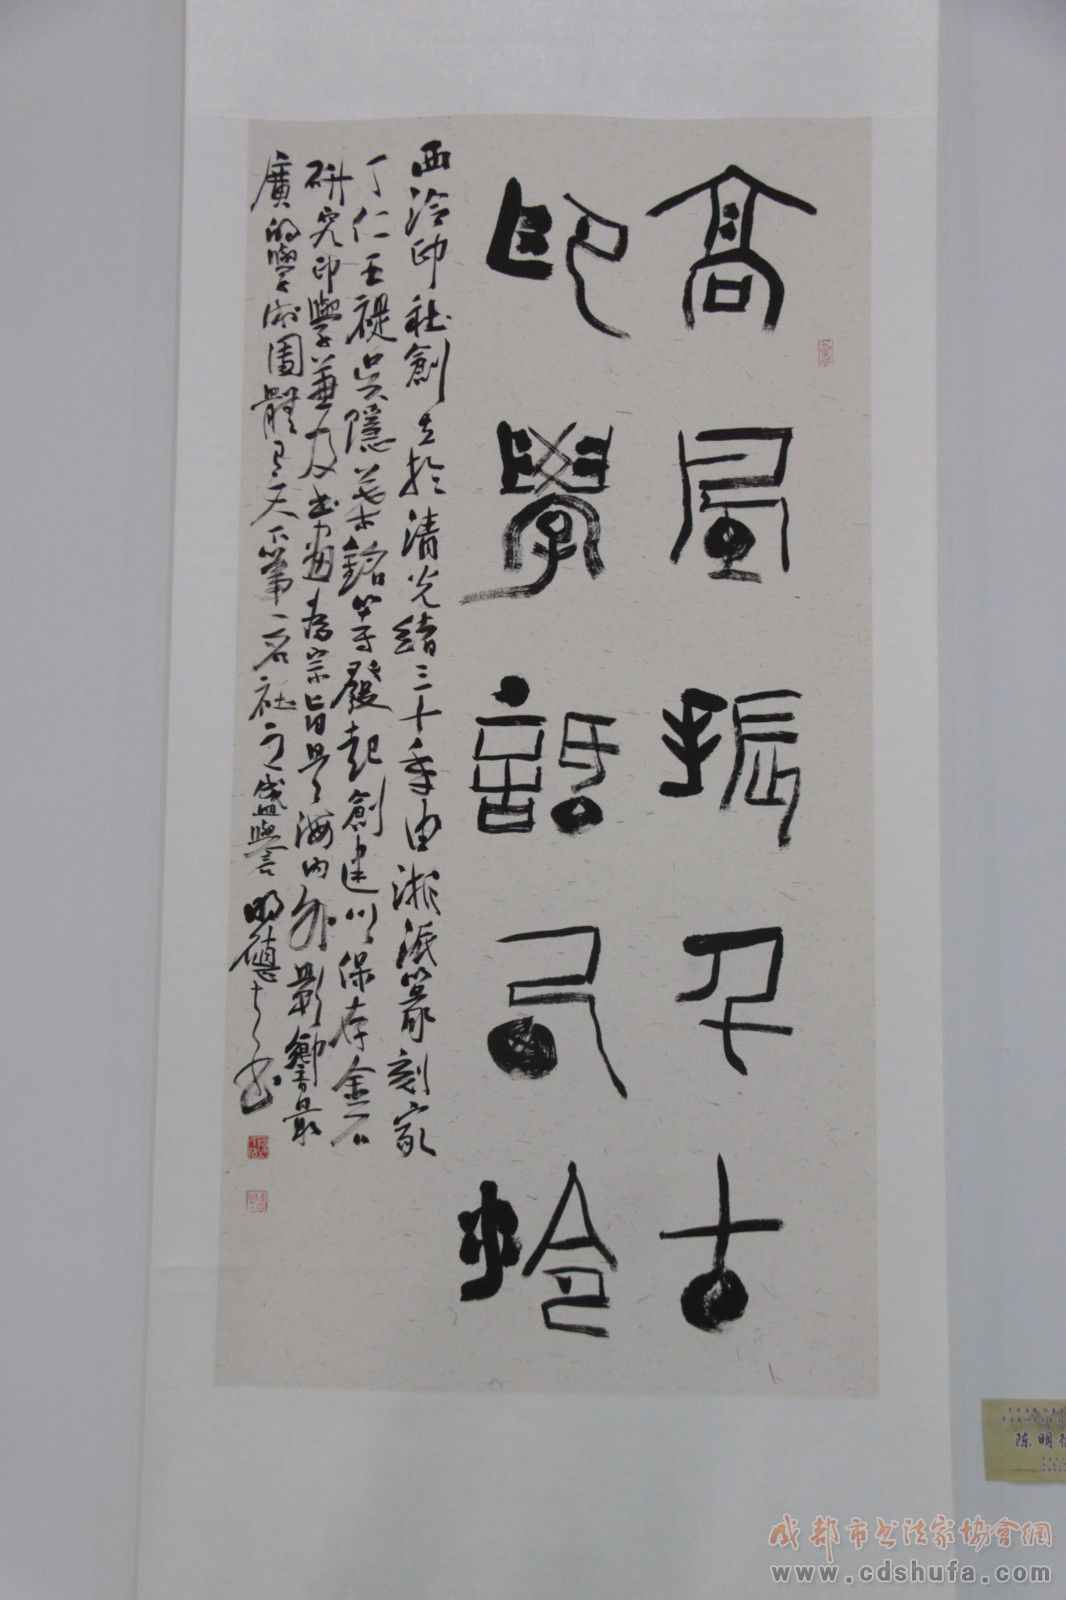 高風振千古
印學話西泠
西泠印社創立於清光緒三十年由浙派篆刻家
丁仁王禔吳隱葉銘等發起創建以保存金石
研究印學兼及書畫為宗旨是海內外影響最
廣的學術團體有天下第一名社之盛譽 明德書
陈明
成都市书法家协会網
www.cdshufa.com